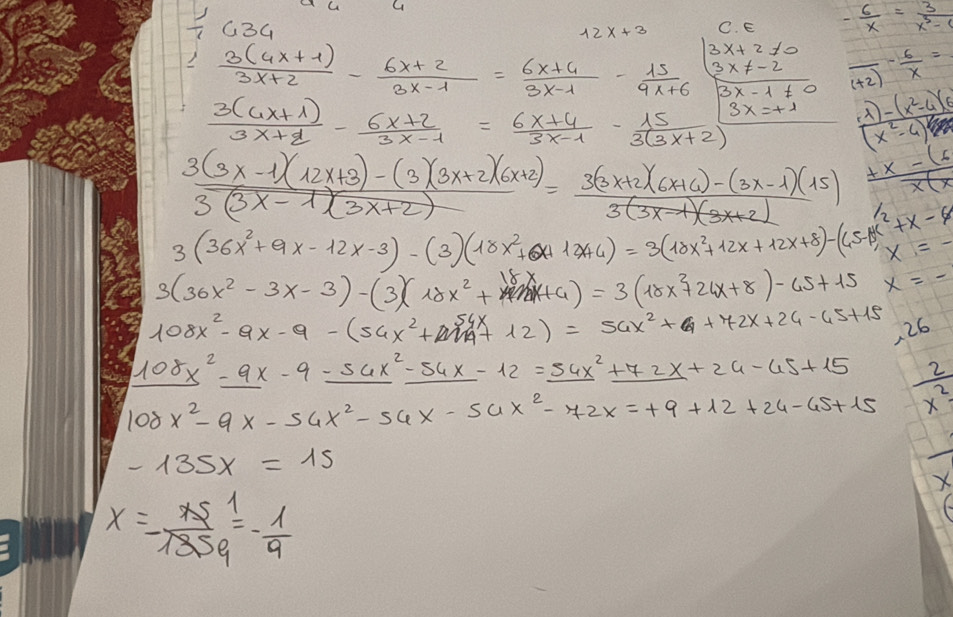 434
12x+3
C.E
3(4x+1)/3x+2 - 6x+2/3x-1 = 6x+4/3x-1 - 15/9x+6
3x+2≠0
3x≠-2
3x-1≠0
3x=+1
3(4x+1)/3x+2 - 6x+2/3x-1 = 6x+4/3x-1 - 15/3(3x+2)
3(3x-1)(12x+3)-(3)(3x+2)(6x+2)/3(3x-1)(3x+2) = 3(3x+2)(6x+4)-(3x-1)(15)/3(3x-1)(3x+2)
3(36x²+9x-12x-3)-(3)(18x²+6x+12x+4)=3(18x²+12x+12x+8)-(45-15)
3(36x²-3x-3)-(3)(18x²+18x+4)=3(18x²+24x+8)-45+15
108x²-9x-9-(54x²+54x+12)=54x²+72x+24-45+15
108x²-9x-9-54x²-54x-12=54x²+72x+24-45+15
108x²-9x-54x²-54x-54x²-72x=+9+12+24-45+15
-135x=15
x=-15/135=-1/9
-6/x=3/
-6/x=
x=-
x=-
,26
2/x²